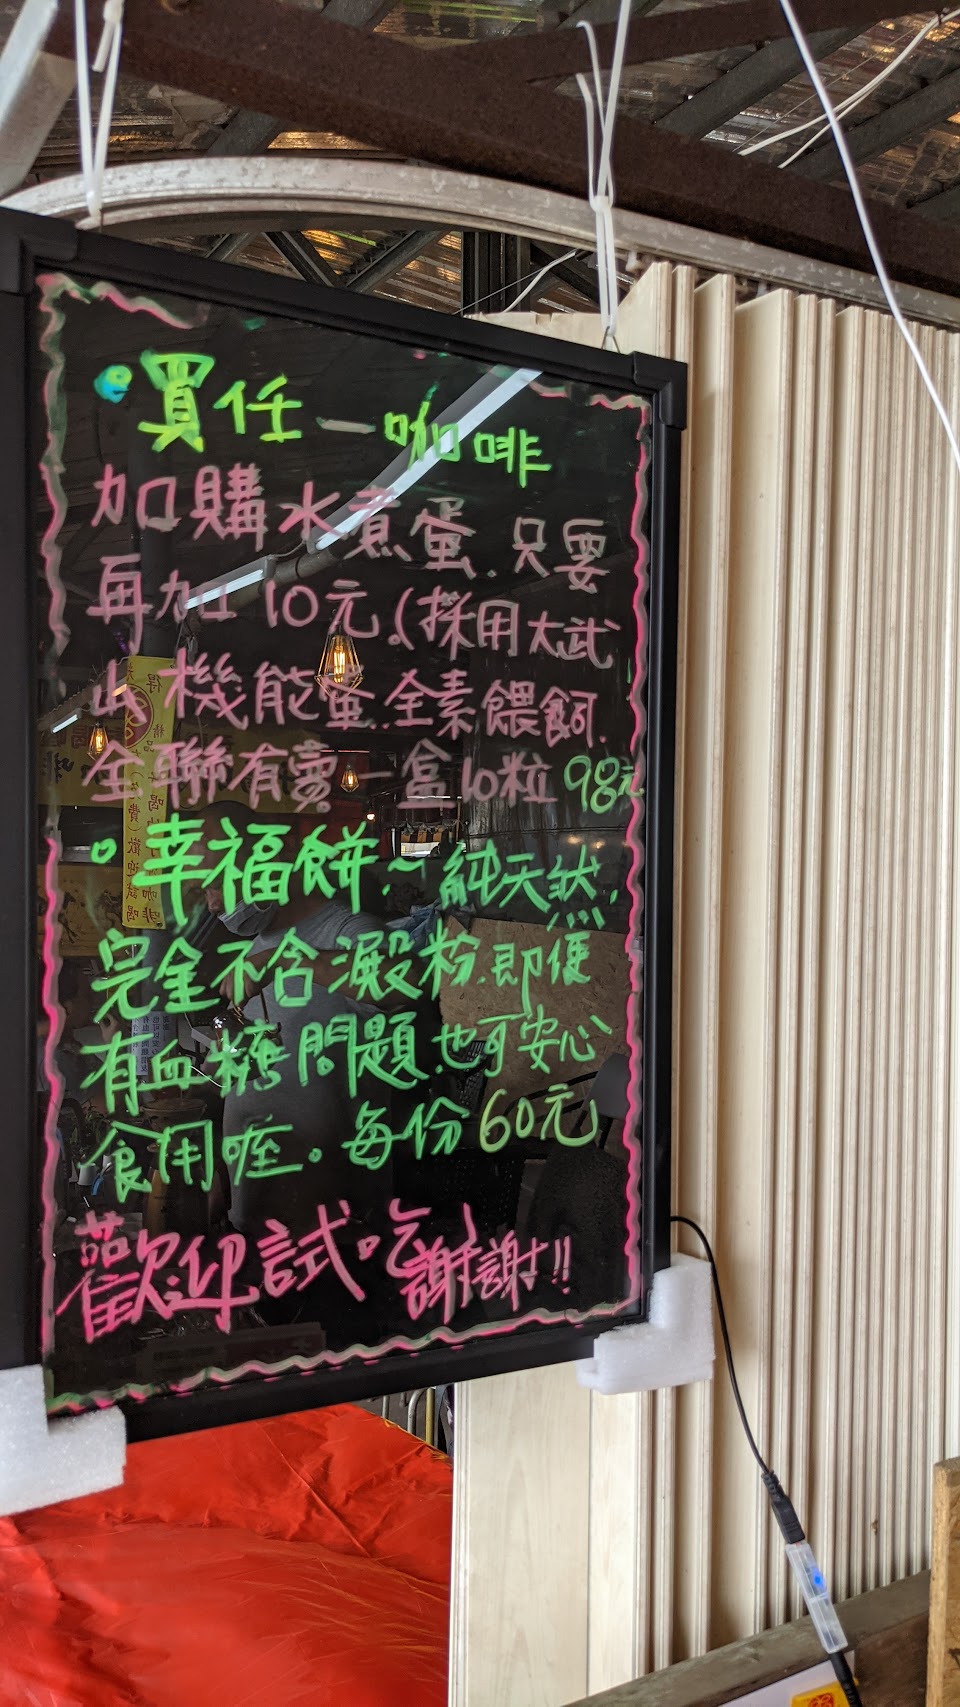 買任一咖啡
加購水煮蛋.只要
再加10元.(採用大武
山機能蛋.全素餵飼.
全聯有賣一盒10粒98元
幸福餅.~純天然,
完全不含澱粉.即便
有血糖問題.也可安心
食用喔。每份60元
歡迎試吃謝謝!!